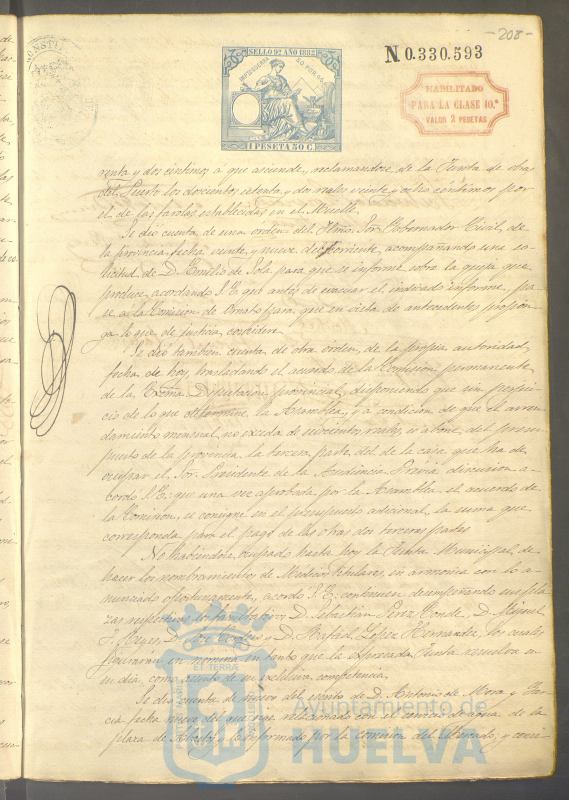 -208-
SELLO 9º AÑO 1882
N 0.330.593
HABILITADO
PARA LA CLASE 10.ª
VALOR 2 PESETAS
1 PESETA 50 C.
renta y dos céntimos a que asciende, reclamandose de la Junta de obras
del Puerto los doscientos setenta y dos reales veinte y ocho céntimos por
el de las farolas establecidas en el Muelle.
Se dió cuenta de una orden del Iltmo. Sor. Gobernador Civil de
la provincia fecha veinte y nueve del corriente, acompañando una so-
licitud de D. Emilio de Sola para que se informe sobre la queja que
produce, acordando S.E. que antes de evacuar el indicado informe, pa-
se a la Comision de Ornato para que en vista de antecedentes propon-
ga lo que de justicia considere.
Se dió tambien cuenta de otra orden, de la propia autoridad,
fecha de hoy, trasladando el acuerdo de la Comision permanente
de la Excma. Diputacion provincial, disponiendo que sin perjui-
cio de lo que determine la Asamblea, y a condicion de que el arren-
damiento mensual no exceda de seiscientos reales, se abone del presu-
puesto de la provincia la tercera parte del de la casa que ha de
ocupar el Sor. Presidente de la Audiencia. Previa discusion a-
cordó S.E. que una vez aprobado por la Asamblea el acuerdo de
la Comision, se consigne en el presupuesto adicional, la suma que
corresponda para el pago de las otras dos terceras partes.
No habiéndose ocupado hasta hoy la Junta Municipal, de
hacer los nombramientos de Médicos titulares, en armonia con lo a-
nunciado oportunamente, acordó S.E. continuen desempeñando sus pla-
zas respectivas los facultativos D. Sebastian Perez Conde, D. Miguel
J. Reyes, D. José y D. Rafael Lopez Hernandez, los cuales
figurarán en nómina en tanto que la expresada Junta resuelva en
su dia, como asunto de su exclusiva competencia.
Se dió cuenta de nuevo del escrito de D. Antonio de Mora y Gar-
cia fecha nueve del que rige, relacionado con el servicio de agua de la
plaza de Abastos, y lo informado por la Comision del Mercado; y consi-
Ayuntamiento de
HUELVA